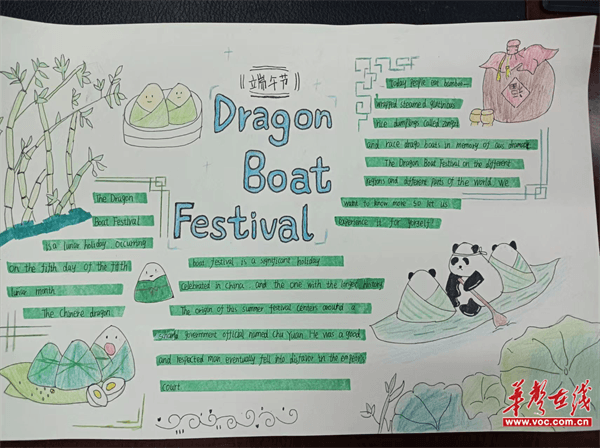 立端午节
Dragon
Boat
Festival
The Dragon
Boat Festival
is a lunar holiday, occurring
on the fifth day of the fifth
lunar month
The Chinese dragon
boat festival is a significant holiday
celebrated in China. and the one with the longest history
The origin of this summer festival centers around a
government official named Chu Yuan. He was a good
and respected man eventually fell into disfavor in the emperor's
court
Today people eat bamboo-
wrapped steamed glutinous
rice dumplings called zongzi
and race drago boats in memory of dramatic
The Dragon Boat Festival on the different
regions and different parts of the world. We
want to know more so let us
experience it for
华声在线
www.voc.com.cn